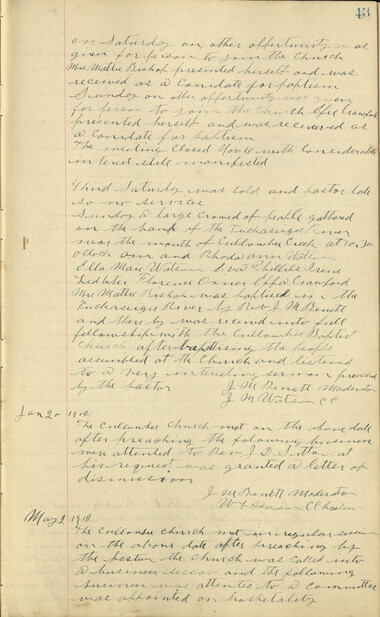 43
on Saturday on other oppertunity was
given for person to join the Church
Mrs Mattie Bishop presented herself and was
received as a Canidate for baptism
Sunday on other oppertunity was given
for person to join the Church Effie Crawford
presented herself and was received as
a Canidate for baptism
The meeting Closed with Considerable
interest still manifested
Third Saturday was Cold and pastor late
so no services
Sunday a large crowd of people gathered
on the bank of the Tuckaseigee river
near the mouth of Cullowhee Creek at 10:30
oclock and Rhoda ann Watson
Ella Maie Watson Eva Phillips Irene
Ledbetter Florence Oxner Effa Crawford
Mrs Mattie Bishop was baptised in the
Tuckaseigee River by Rev J. M. Benett
and there by was received into full
fellowship with the Cullowhee Baptist
Church after baptising the people
assembled at the Church and listened
to a very interesting sermon preached
by the pastor
J M Benett Moderator
J M Watson CC
Jan 20 1912
The Cullowhee Church met on the above date
after preaching the following business
was attented to Rev J. D. Sutton at
his request was granted a letter of
dismission
J M Benett Moderator
W Henson CC
May 2 1912
The Cullowhee Church met in regular session
on the above date after preaching by
the pastor the Church was Called into
a business session and the following
business was attented to a Committee
was appointed on hospitality